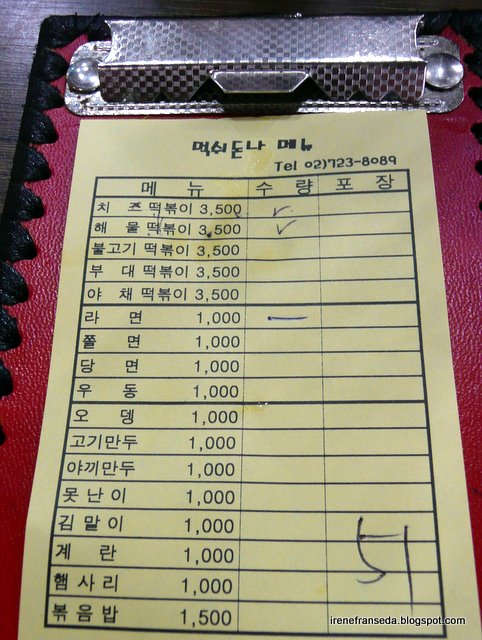 먹쉬돈나 메뉴
Tel 02)723-8089
메 뉴 수 량 포 장
치 즈 떡볶이 3,500 ✓
해 물 떡볶이 3,500 ✓
불고기 떡볶이 3,500
부 대 떡볶이 3,500
야 채 떡볶이 3,500
라 면 1,000 —
쫄 면 1,000
당 면 1,000
우 동 1,000
오 뎅 1,000
고기만두 1,000
야끼만두 1,000
못 난 이 1,000
김 말 이 1,000
계 란 1,000
햄 사 리 1,000
볶 음 밥 1,500
irenefranseda.blogspot.com